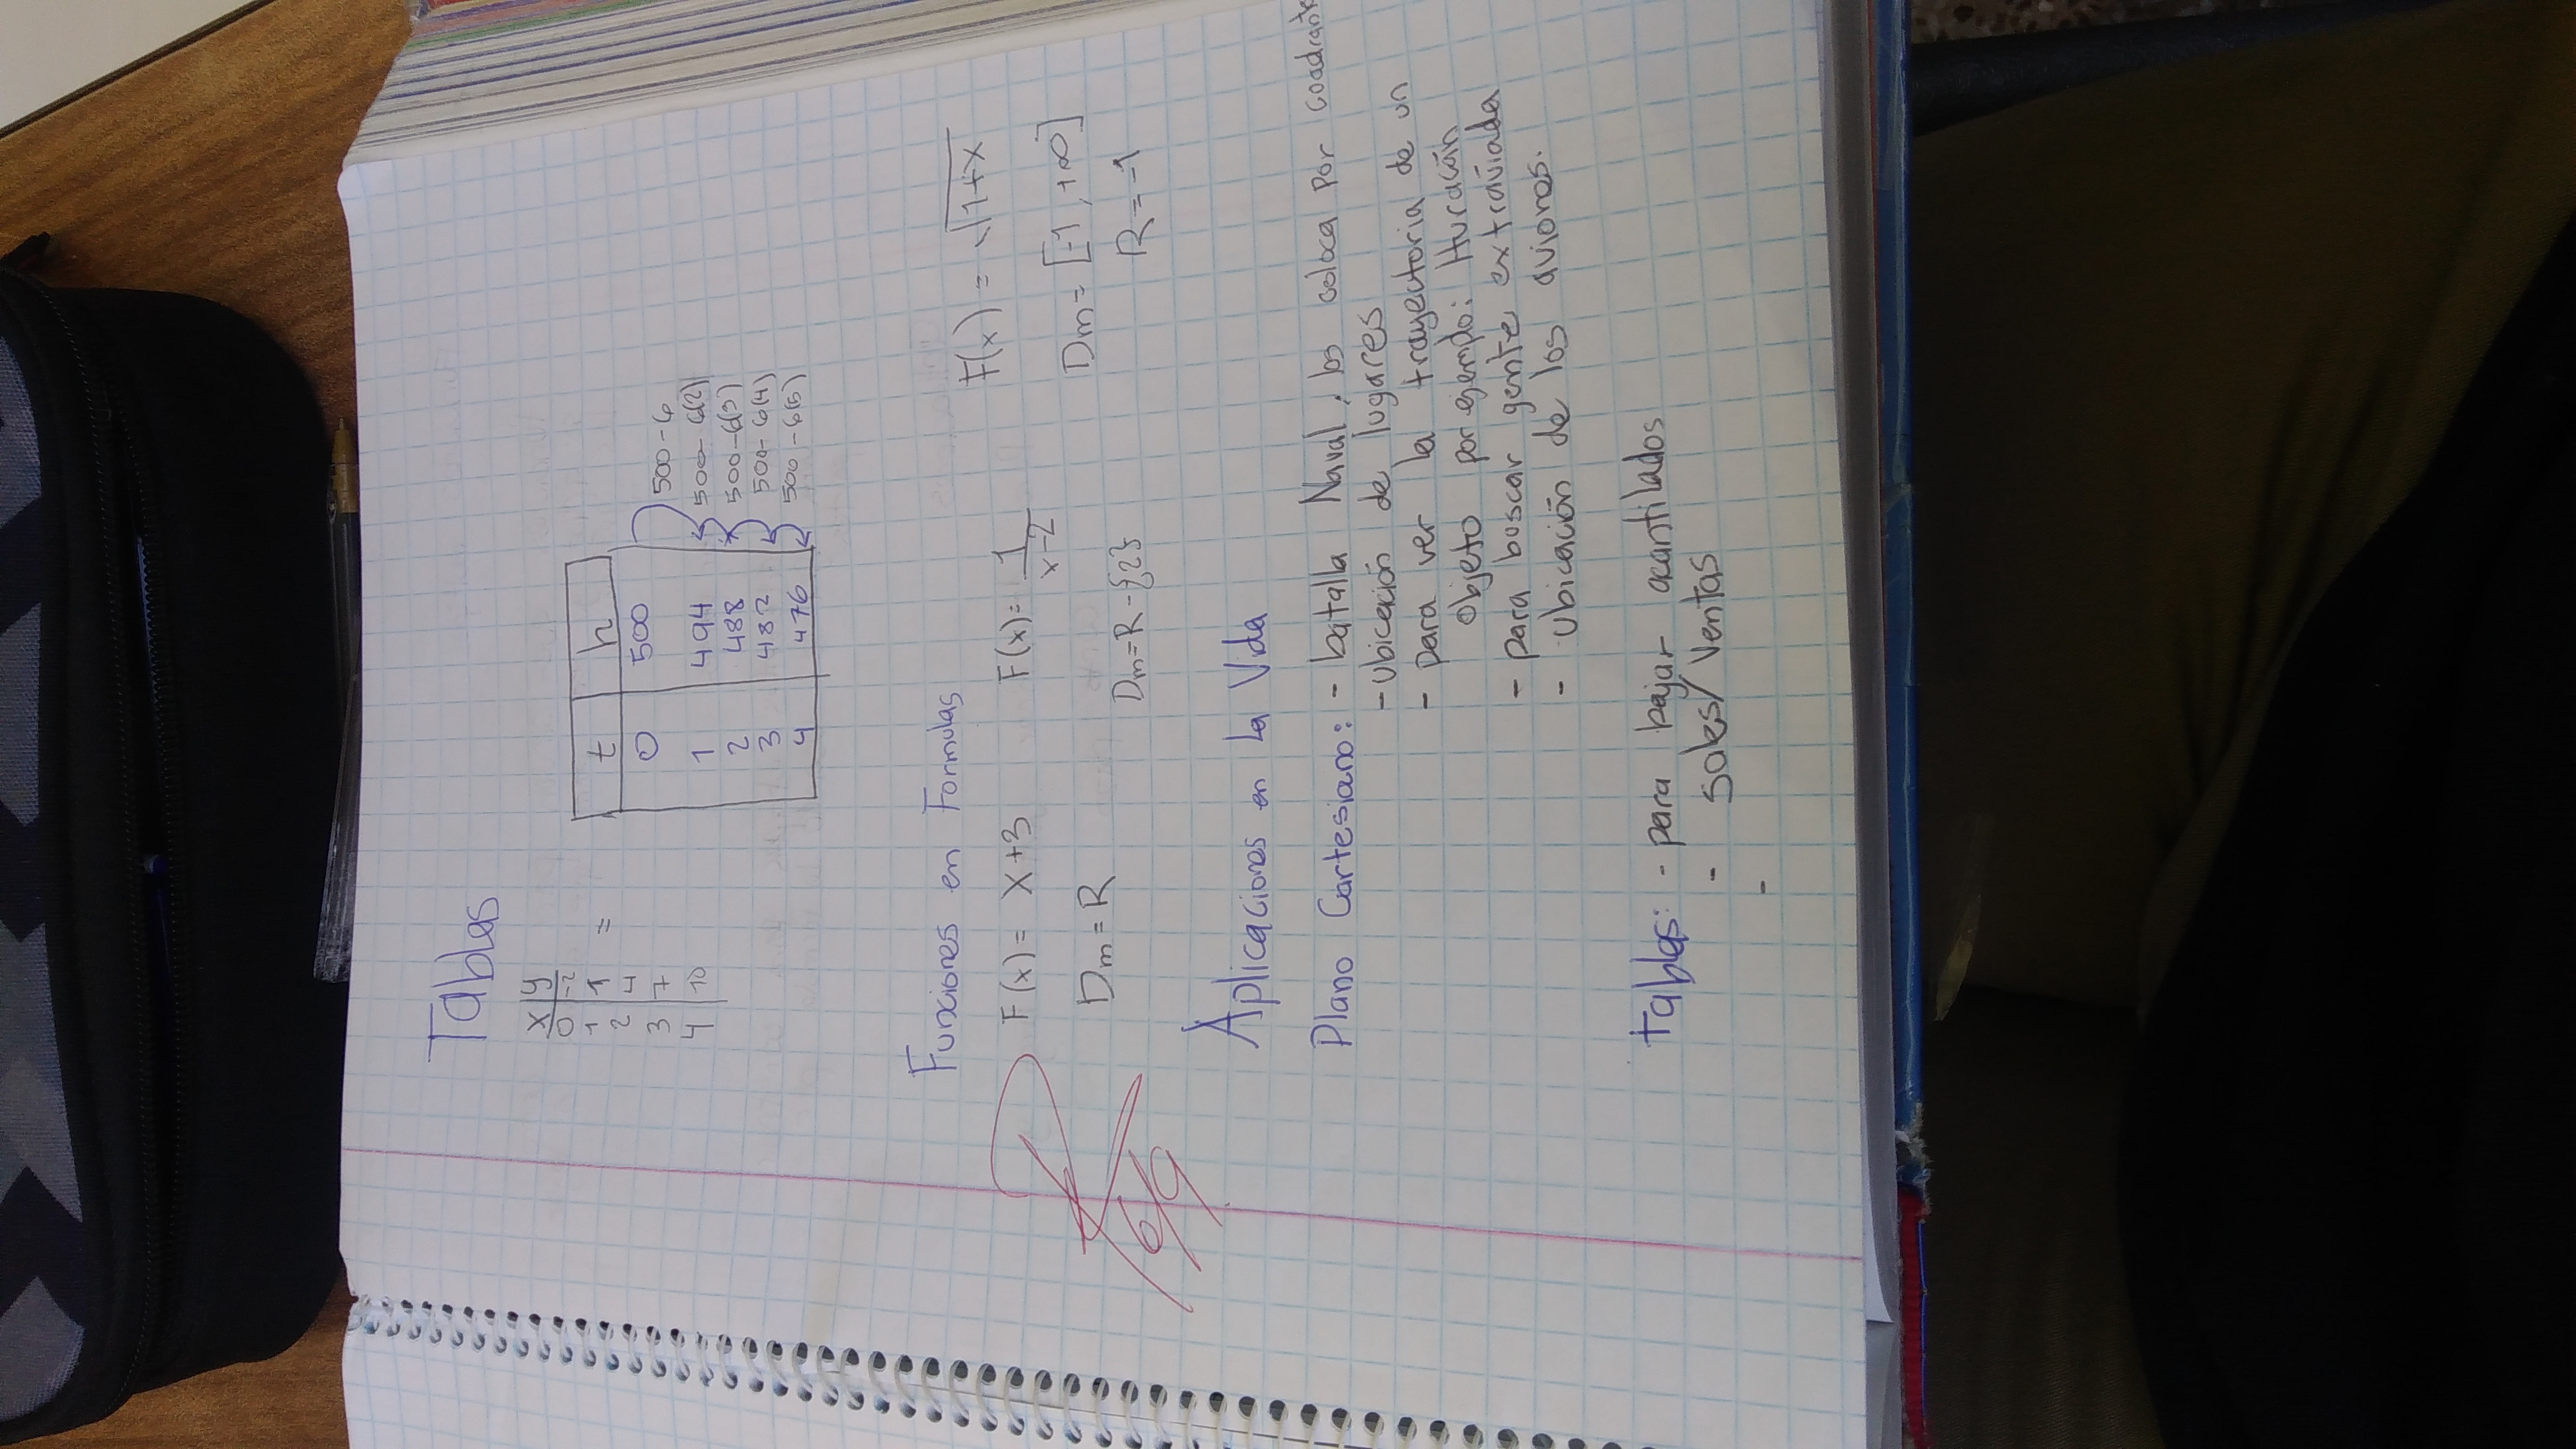 Tablas
x | y
0 | -2
1 | 1 =
2 | 4
3 | 7
4 | 10
t | h
0 | 500
1 | 494 500-6
2 | 488 500-6(2)
3 | 482 500-6(3)
4 | 476 500-6(4)
500-6(5)
Funciones en Formulas
F(x) = x+3 F(x) = 1/x-2 F(x) = √1+x
Dm = R Dm=R-{2} Dm = [-1, +∞]
R=-1
Aplicaciones en la Vida
Plano Cartesiano: - batalla Naval, los coloca por coadrante
- Ubicación de lugares
- para ver la trayectoria de un
objeto por ejemplo: Huracán
- para buscar gente extraviada
- Ubicación de los aviones.
tablas: - para bajar acantilados
- Sales/Ventas
-